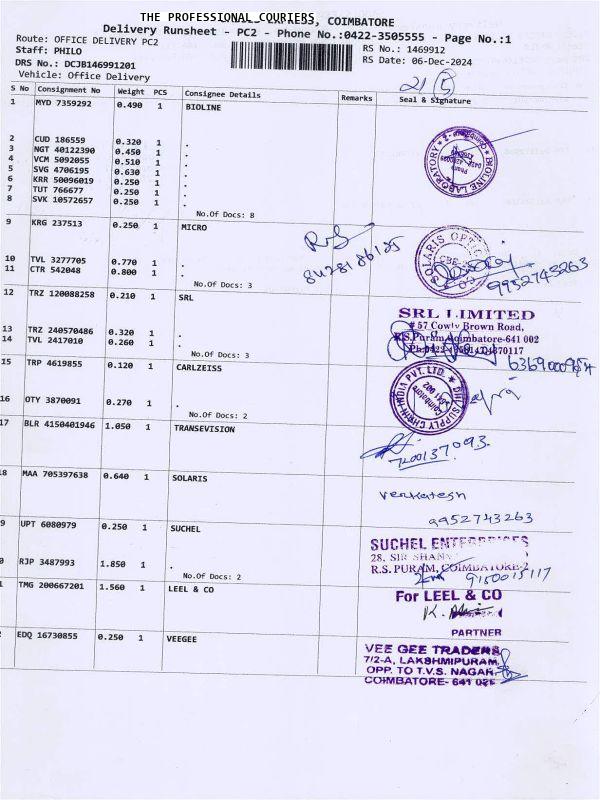 THE PROFESSIONAL COURIERS, COIMBATORE
Delivery Runsheet - PC2 - Phone No.:0422-3505555 - Page No.:1
Route: OFFICE DELIVERY PC2
RS No.: 1469912
Staff: PHILO
RS Date: 06-Dec-2024
DRS No.: DCJB146991201
Vehicle: Office Delivery
S No Consignment No Weight PCS Consignee Details Remarks Seal & Signature
1 MYD 7359292 0.490 1 BIOLINE
2 CUD 186559 0.320 1 .
3 NGT 40122390 0.450 1 .
4 VCM 5092055 0.510 1 .
5 SVG 4706195 0.630 1 .
6 KRR 50096019 0.250 1 .
7 TUT 766677 0.250 1 .
8 SVK 10572657 0.250 1 .
No.Of Docs: 8
BIOLINE LABORATORY
9 KRG 237513 0.250 1 MICRO
10 TVL 3277705 0.770 1 .
11 CTR 542048 0.800 1 .
No.Of Docs: 3
SOLARIS OPTIC
9952743263
12 TRZ 120088258 0.210 1 SRL
13 TRZ 240570486 0.320 1 .
14 TVL 2417010 0.260 1 .
No.Of Docs: 3
SRL LIMITED
# 57 Cowly Brown Road,
R.S.Puram, Coimbatore-641 002
15 TRP 4619855 0.120 1 CARLZEISS
16 OTY 3870091 0.270 1 .
No.Of Docs: 2
DHL SUPPLY CHAIN INDIA PVT. LTD.
Coimbatore
641 002
17 BLR 4150401946 1.050 1 TRANSEVISION
7200137093
8 MAA 705397638 0.640 1 SOLARIS
Venkatesh
9952743263
9 UPT 6080979 0.250 1 SUCHEL
0 RJP 3487993 1.850 1 .
No.Of Docs: 2
SUCHEL ENTERPRISES
28, SIR SHAN
R.S. PURAM, COIMBATORE-2
9150015117
1 TMG 200667201 1.560 1 LEEL & CO
For LEEL & CO
PARTNER
2 EDQ 16730855 0.250 1 VEEGEE
VEE GEE TRADERS
7/2-A, LAKSHMIPURAM,
OPP. TO T.V.S. NAGAR,
COIMBATORE- 641 025